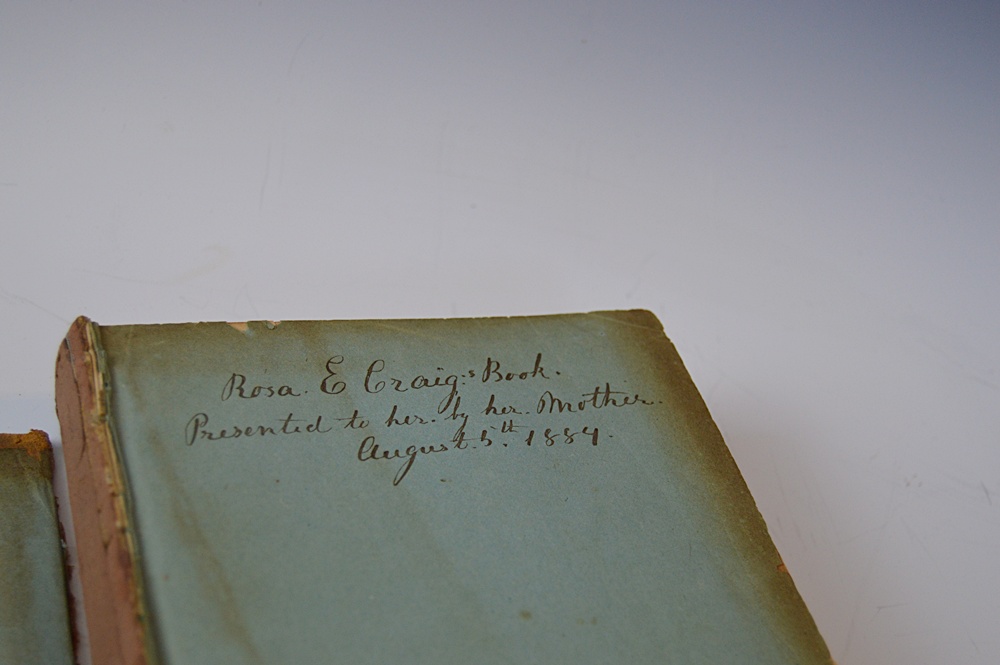 Rosa. E Craig:s Book.
Presented to her. by her. Mother.
August. 5.th 1884.